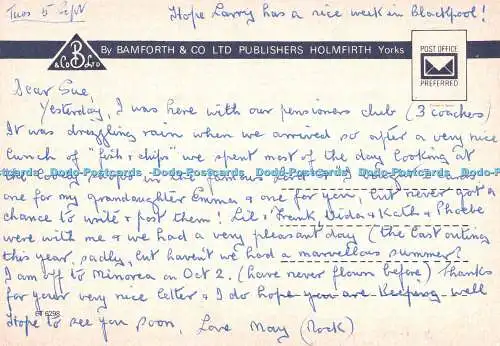 Tues 5 Sept
Hope Larry has a nice week in Blackpool!
B
& Co LTD
By BAMFORTH & CO LTD PUBLISHERS HOLMFIRTH Yorks
POST OFFICE
PREFERRED
Dear Sue,
Yesterday, I was here with our pensioners club (3 coaches)
It was drizzling rain when we arrived so after a very nice
lunch of "fish & chips" we spent most of the day looking at
the lovely shops in the famous
one for my grandaughter Emma & one for you, but never got a
chance to write & post them! Lil & Frank, Vida & Kath & Phoebe
were with me & we had a very pleasant day (the last outing
this year, sadly, but haven't we had a marvellous summer?
I am off to Minorca on Oct 2. (have never flown before) Thanks
for your very nice letter & I do hope you are keeping well
ET 6298
Hope to see you soon, Love May (Rock)
Dodo-Postcards Dodo-Postcards Dodo-Postcards Dodo-Postcards Dodo-Postcards